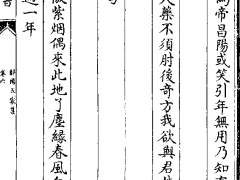 馬帝昌陽或笑引年無用乃知有
大藥不須肘後奇方我欲與君
紫烟偶來此地了塵緣春風
過一年